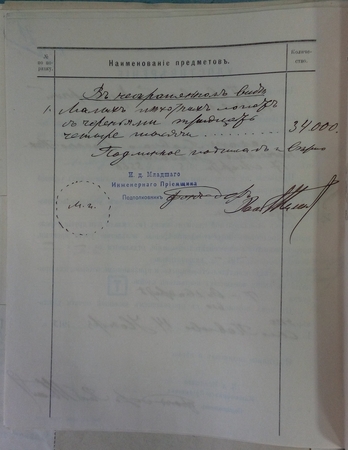 № по по-рядку.
Наименованіе предметовъ.
Количе-ство.
Въ некрашенномъ видѣ
1. Малыхъ пѣхотныхъ лопатъ
съ череньями тридцать
четыре тысячи 34000.
Подлинное подписалъ и вѣрно
И. д. Младшаго
Инженернаго Пріемщика
Подполковникъ
М. п.